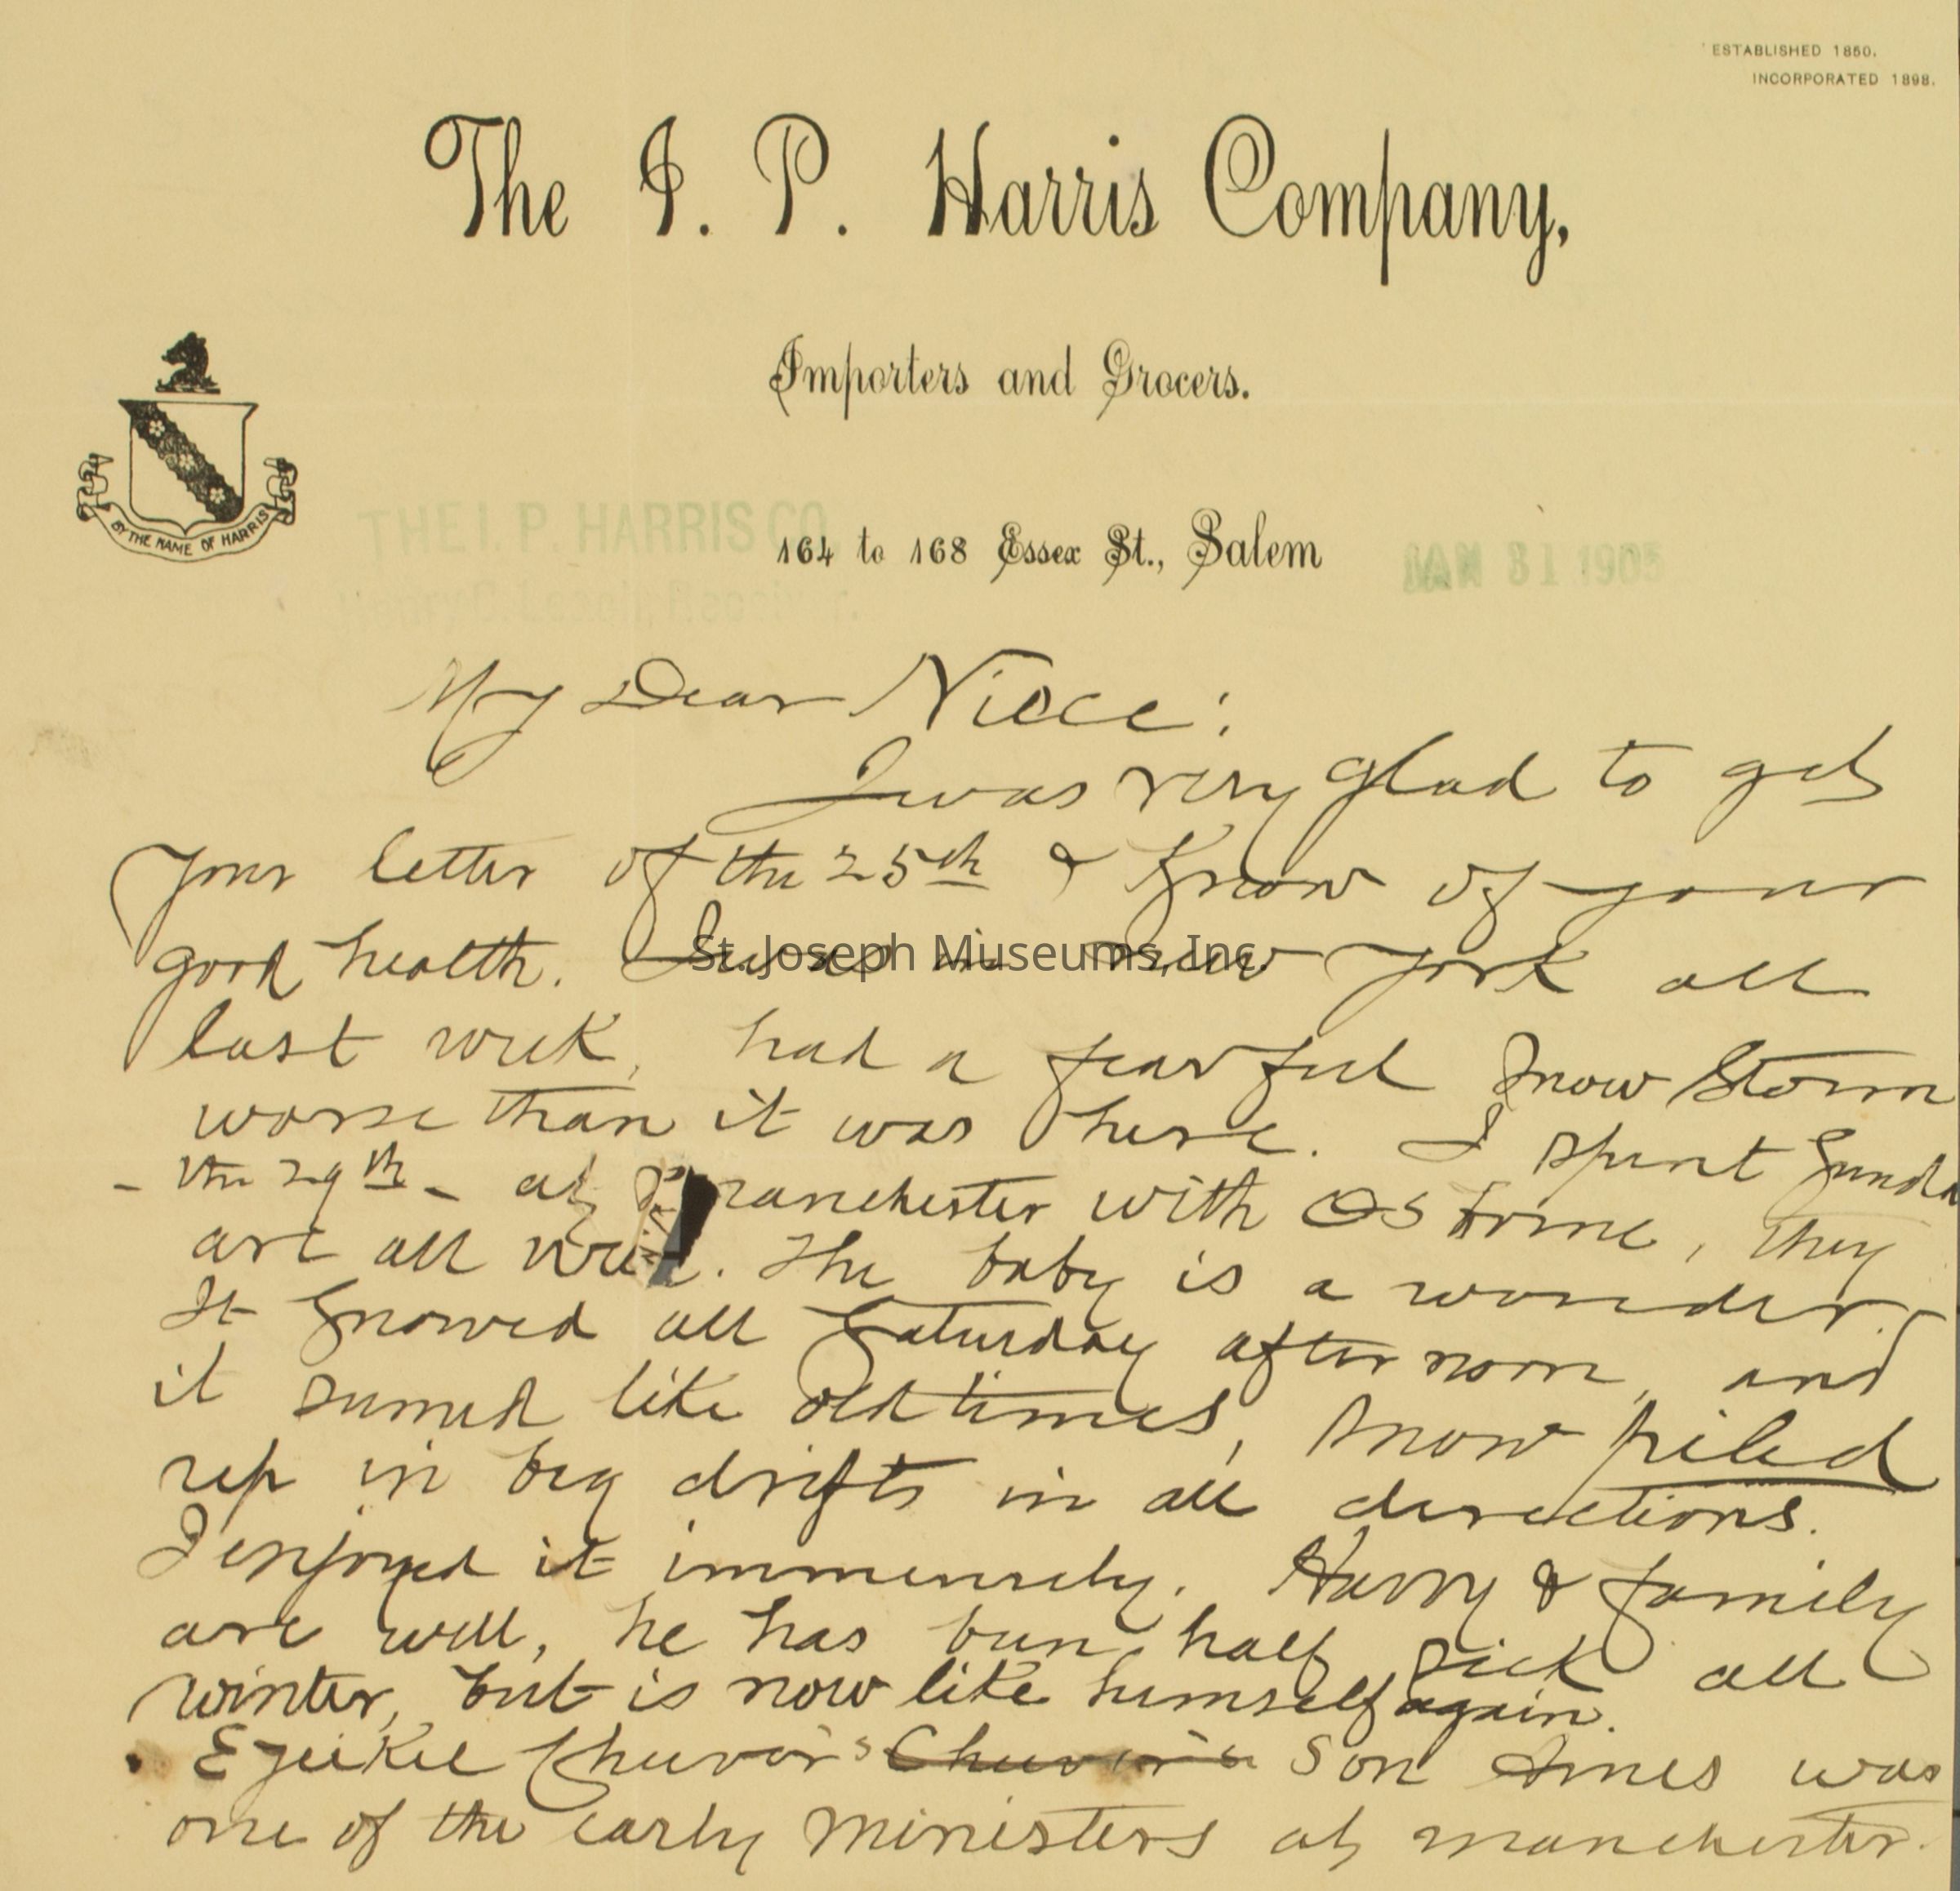 ESTABLISHED 1850.
INCORPORATED 1898.
The I. P. Harris Company,
Importers and Grocers.
BY THE NAME OF HARRIS
THE I. P. HARRIS CO
164 to 168 Essex St., Salem
JAN 31 1905
Henry
My Dear Niece:
I was very glad to get
your letter of the 25th & Know of your
good health. I was in new york all
last week, had a fearful Snow Storm
worse than it was here. I spent Sunda
- the 29th - at manchester with they
are all well. The baby is a wonder.
It Snowed all Saturday afternoon, and
it seemed like old times, snow piled
up in big drifts in all directions.
I enjoyed it immensely. Harry & family
are well, he has been half sick all
winter, but is now like himself again.
Ezeikel Cheever's Cheever's Son Ames was
one of the early ministers at manchester.
St. Joseph Museums, Inc.